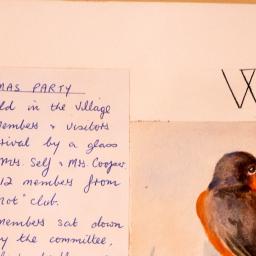 MAS PARTY
ld in the Village
embers & visitors
rival by a glass
Mrs. Self & Mrs Cooper
12 members from
not" club.
embers sat down
y the committee,
W